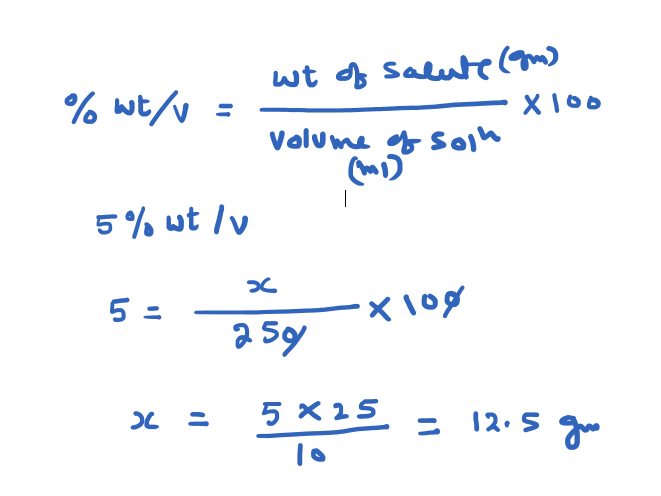 % wt/v = wt of Salute (gm) / Volume of Solⁿ (ml) × 100
5% wt/v
5 = x / 250 × 100
x = 5 × 25 / 10 = 12.5 gm